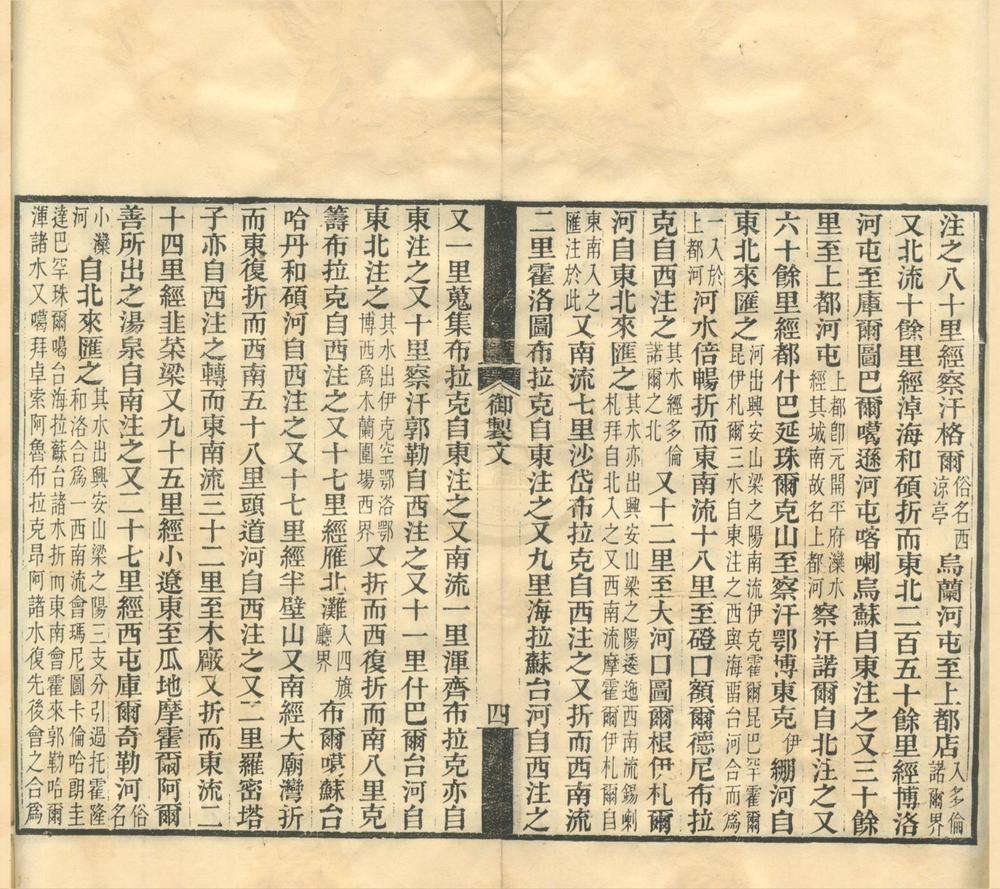 注之八十里經察汗格爾俗名西涼亭烏蘭河屯至上都店入多倫諾爾界
又北流十餘里經淖海和碩折而東北二百五十餘里經博洛
河屯至庫爾圖巴爾噶遜河屯喀喇烏蘇自東注之又三十餘
里至上都河屯上都卽元開平府灤水經其城南故名上都河察汗諾爾自北注之又
六十餘里經都什巴延珠爾克山至察汗鄂博東克伊繃河自
東北來匯之河出興安山梁之陽南流伊克霍爾昆巴罕霍爾昆伊札爾三水自東注之西與海畱台河合而爲
一入於上都河河水倍暢折而東南流十八里至磴口額爾德尼布拉
克自西注之其水經多倫諾爾之北又十二里至大河口圖爾根伊札爾
河自東北來匯之其水亦出興安山梁之陽逶迤西南流錫喇札拜自北入之又西南流摩霍爾伊札爾自
東南入之匯注於此又南流七里沙岱布拉克自西注之又折而西南流
二里霍洛圖布拉克自東注之又九里海拉蘇台河自西注之
御製文
四
又一里蒐集布拉克自東注之又南流一里渾齊布拉克亦自
東注之又十里察汗郭勒自西注之又十一里什巴爾台河自
東北注之其水出伊克空鄂洛鄂博西爲木蘭圍場西界又折而西復折而南八里克
籌布拉克自西注之又十七里經雁北灘入四旗廳界布爾噶蘇台
哈丹和碩河自西注之又十七里經半壁山又南經大廟灣折
而東復折而西南五十八里頭道河自西注之又二里羅密塔
子亦自西注之轉而東南流三十二里至木廠又折而東流二
十四里經韭菜梁又九十五里經小遼東至瓜地摩霍爾阿爾
善所出之湯泉自南注之又二十七里經西屯庫爾奇勒河俗名
小灤河自北來匯之其水出興安山梁之陽三支分引過托霍隆和洛合爲一西南流會瑪尼圖卡倫哈朗圭
達巴罕珠爾噶台海拉蘇台諸水折而東南會霍來郭勒哈爾
渾諸水又噶拜卓索阿魯布拉克昂阿諸水復先後會之合爲